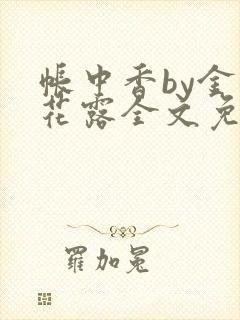 帐中香by金
花露全文免
羅加冕